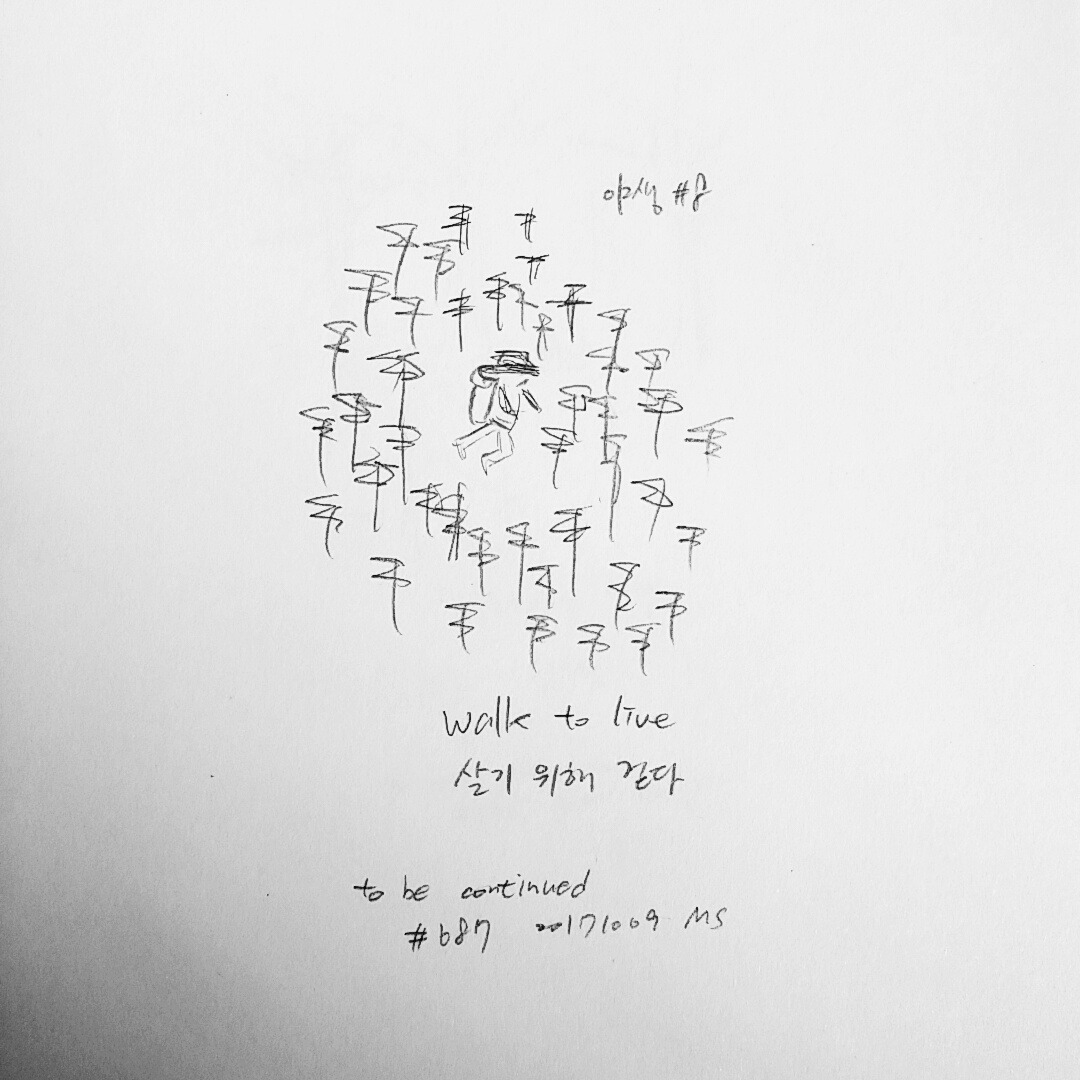 야생 #8
walk to live
살기 위해 걷다
to be continued
#687 20171009 MS